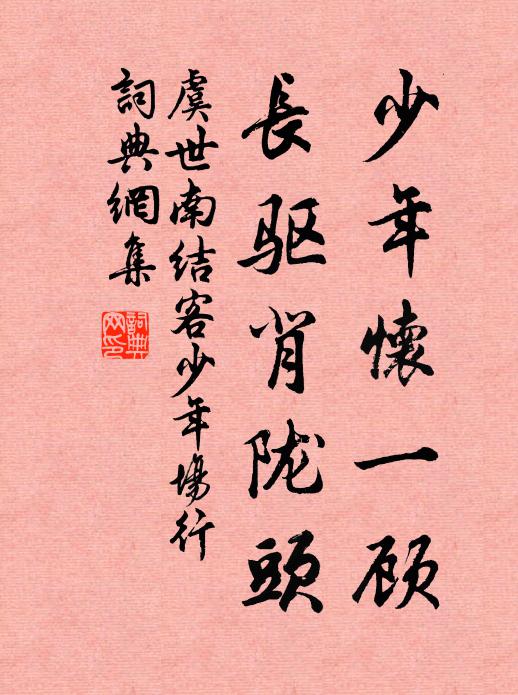 少年懷一顾
長驱背陇頭
虞世南结客少年場行
詞典網集
詞典網印